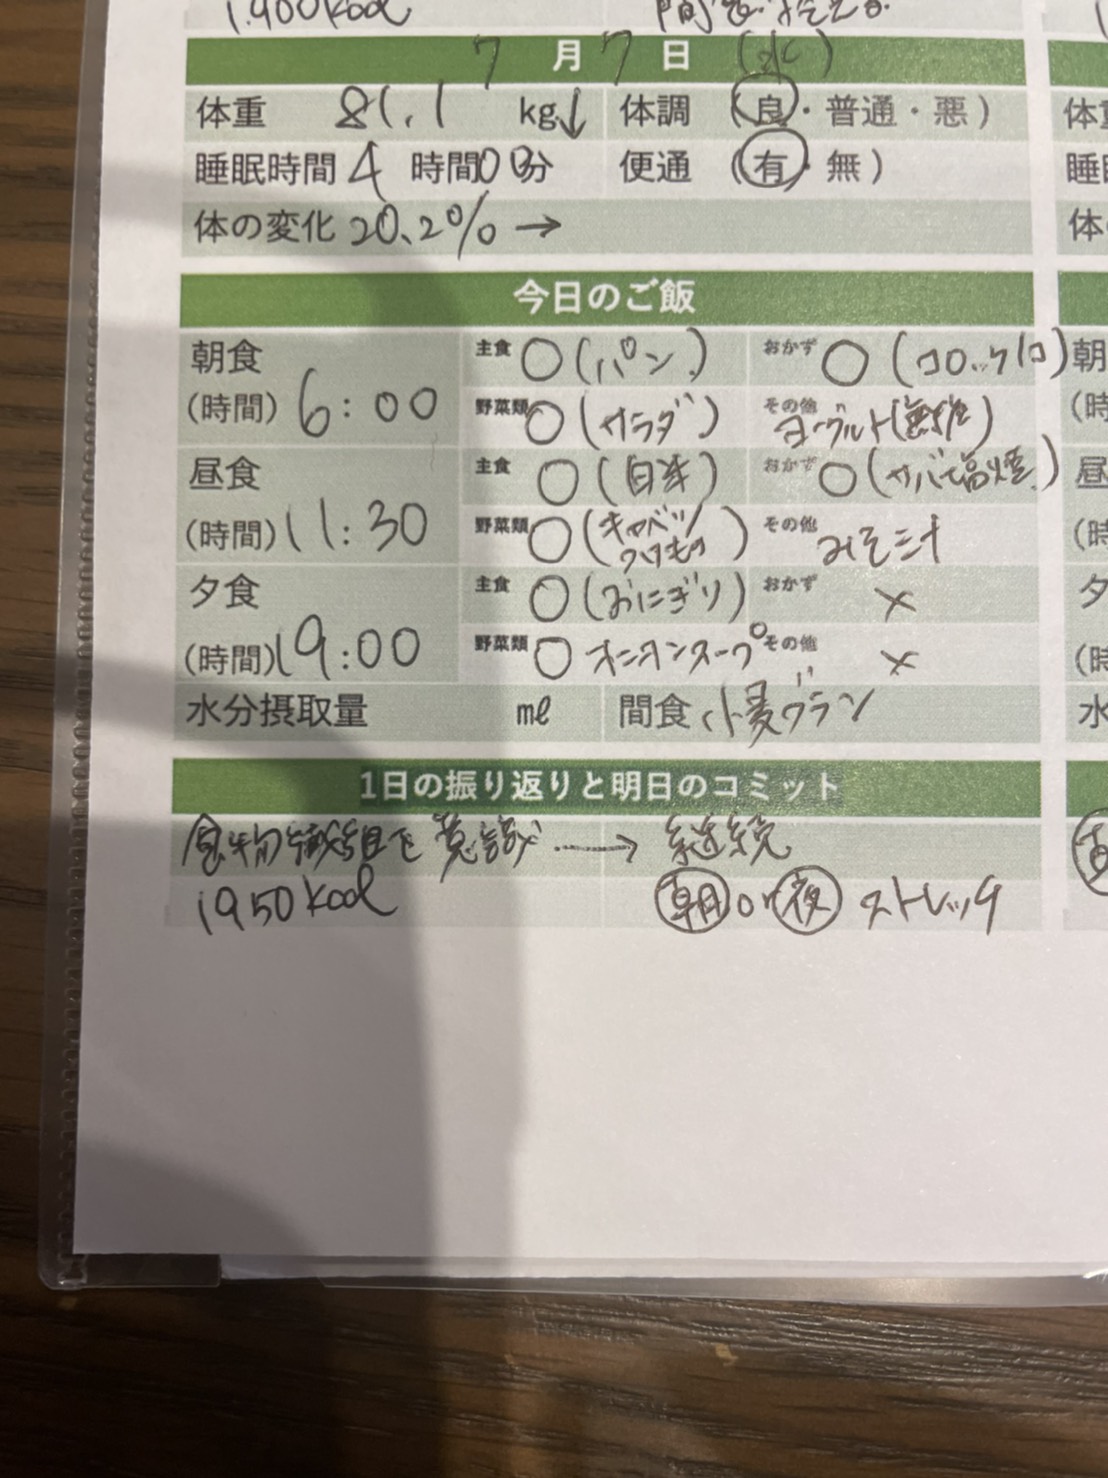 1.900kcal 間食控える
7月7日(水)
体重 81.1 kg↓ 体調 (良・普通・悪)
睡眠時間 4 時間00分 便通 (有・無)
体の変化 20.2% →
今日のご飯
朝食 主食 ○(パン) おかず ○(コロッケ1コ)
(時間) 6:00 野菜類 ○(サラダ) その他 ヨーグルト(無糖)
昼食 主食 ○(白米) おかず ○(サバ塩焼)
(時間) 11:30 野菜類 ○(キャベツつけもの) その他 みそ汁
夕食 主食 ○(おにぎり) おかず ×
(時間) 19:00 野菜類 ○ オニオンスープ その他 ×
水分摂取量 mℓ 間食 小麦ブラン
1日の振り返りと明日のコミット
食物繊維を意識 → 継続
1950kcal 朝or夜 ストレッチ